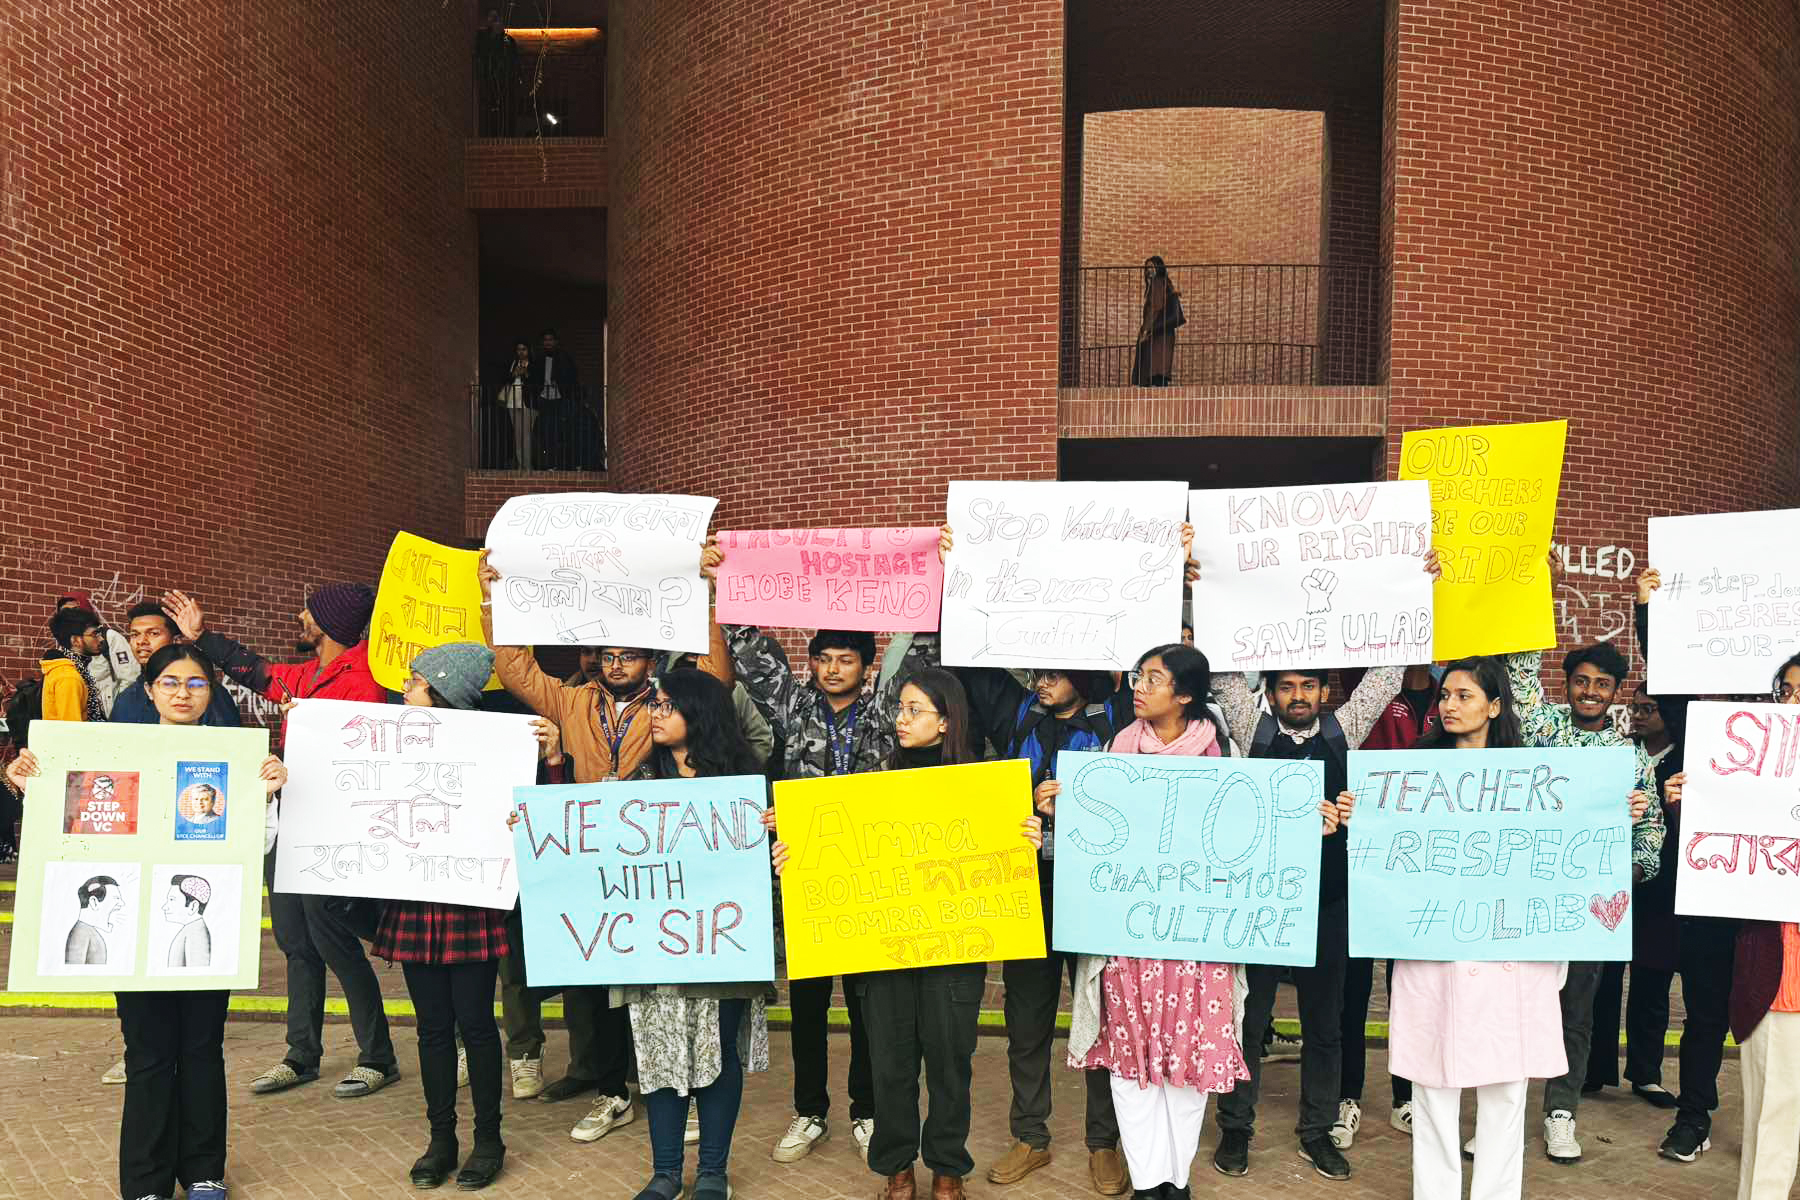 এখানে
বানান
শিখা
গাঁজায় নৌকা
পার্কিং
তোলা যায়?
FACULTY
HOSTAGE
HOBE KENO
Stop Vandalizing
in the name of
Graffiti
KNOW
UR RIGHTS
SAVE ULAB
OUR
TEACHERS
ARE OUR
PRIDE
KILLED
# step_dow
DISRES
-OUR-
STEP
DOWN
VC
WE STAND
WITH
OUR
VICE CHANCELLOR
গালি
না হয়ে
বুলি
হলেও পারতো!
WE STAND
WITH
VC SIR
Amra
BOLLE দালাল
TOMRA BOLLE
হালাল
STOP
ChAPRI-MOB
CULTURE
#TEACHERS
#RESPECT
#ULAB
নোংরা